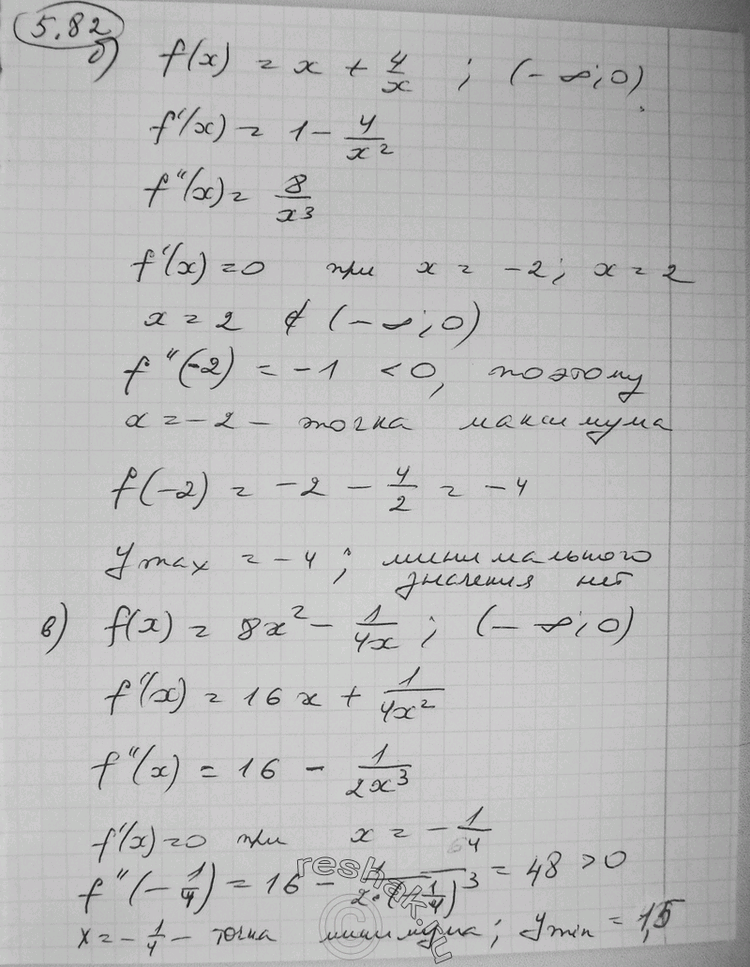 5.82
б) f(x) = x + 4/x ; (-∞; 0)
f'(x) = 1 - 4/x²
f''(x) = 8/x³
f'(x) = 0 при x = -2; x = 2
x = 2 ∉ (-∞; 0)
f''(-2) = -1 < 0, поэтому
x = -2 - точка максимума
f(-2) = -2 - 4/2 = -4
y max = -4 ; минимального
значения нет
в) f(x) = 8x² - 1/4x ; (-∞; 0)
f'(x) = 16x + 1/4x²
f''(x) = 16 - 1/2x³
f'(x) = 0 при x = -1/4
f''(-1/4) = 16 - 1/2·(-1/4)³ = 48 > 0
x = -1/4 - точка минимума ; y min = 1,5
reshak.ru
©